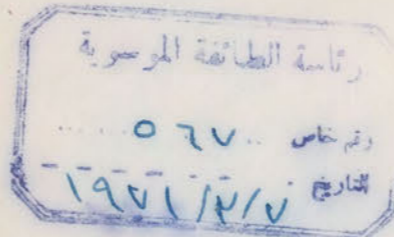 رئاسة الطائفة الموسوية
رقم خاص ٥٦٧
التاريخ ١٩٧١/٣/٧